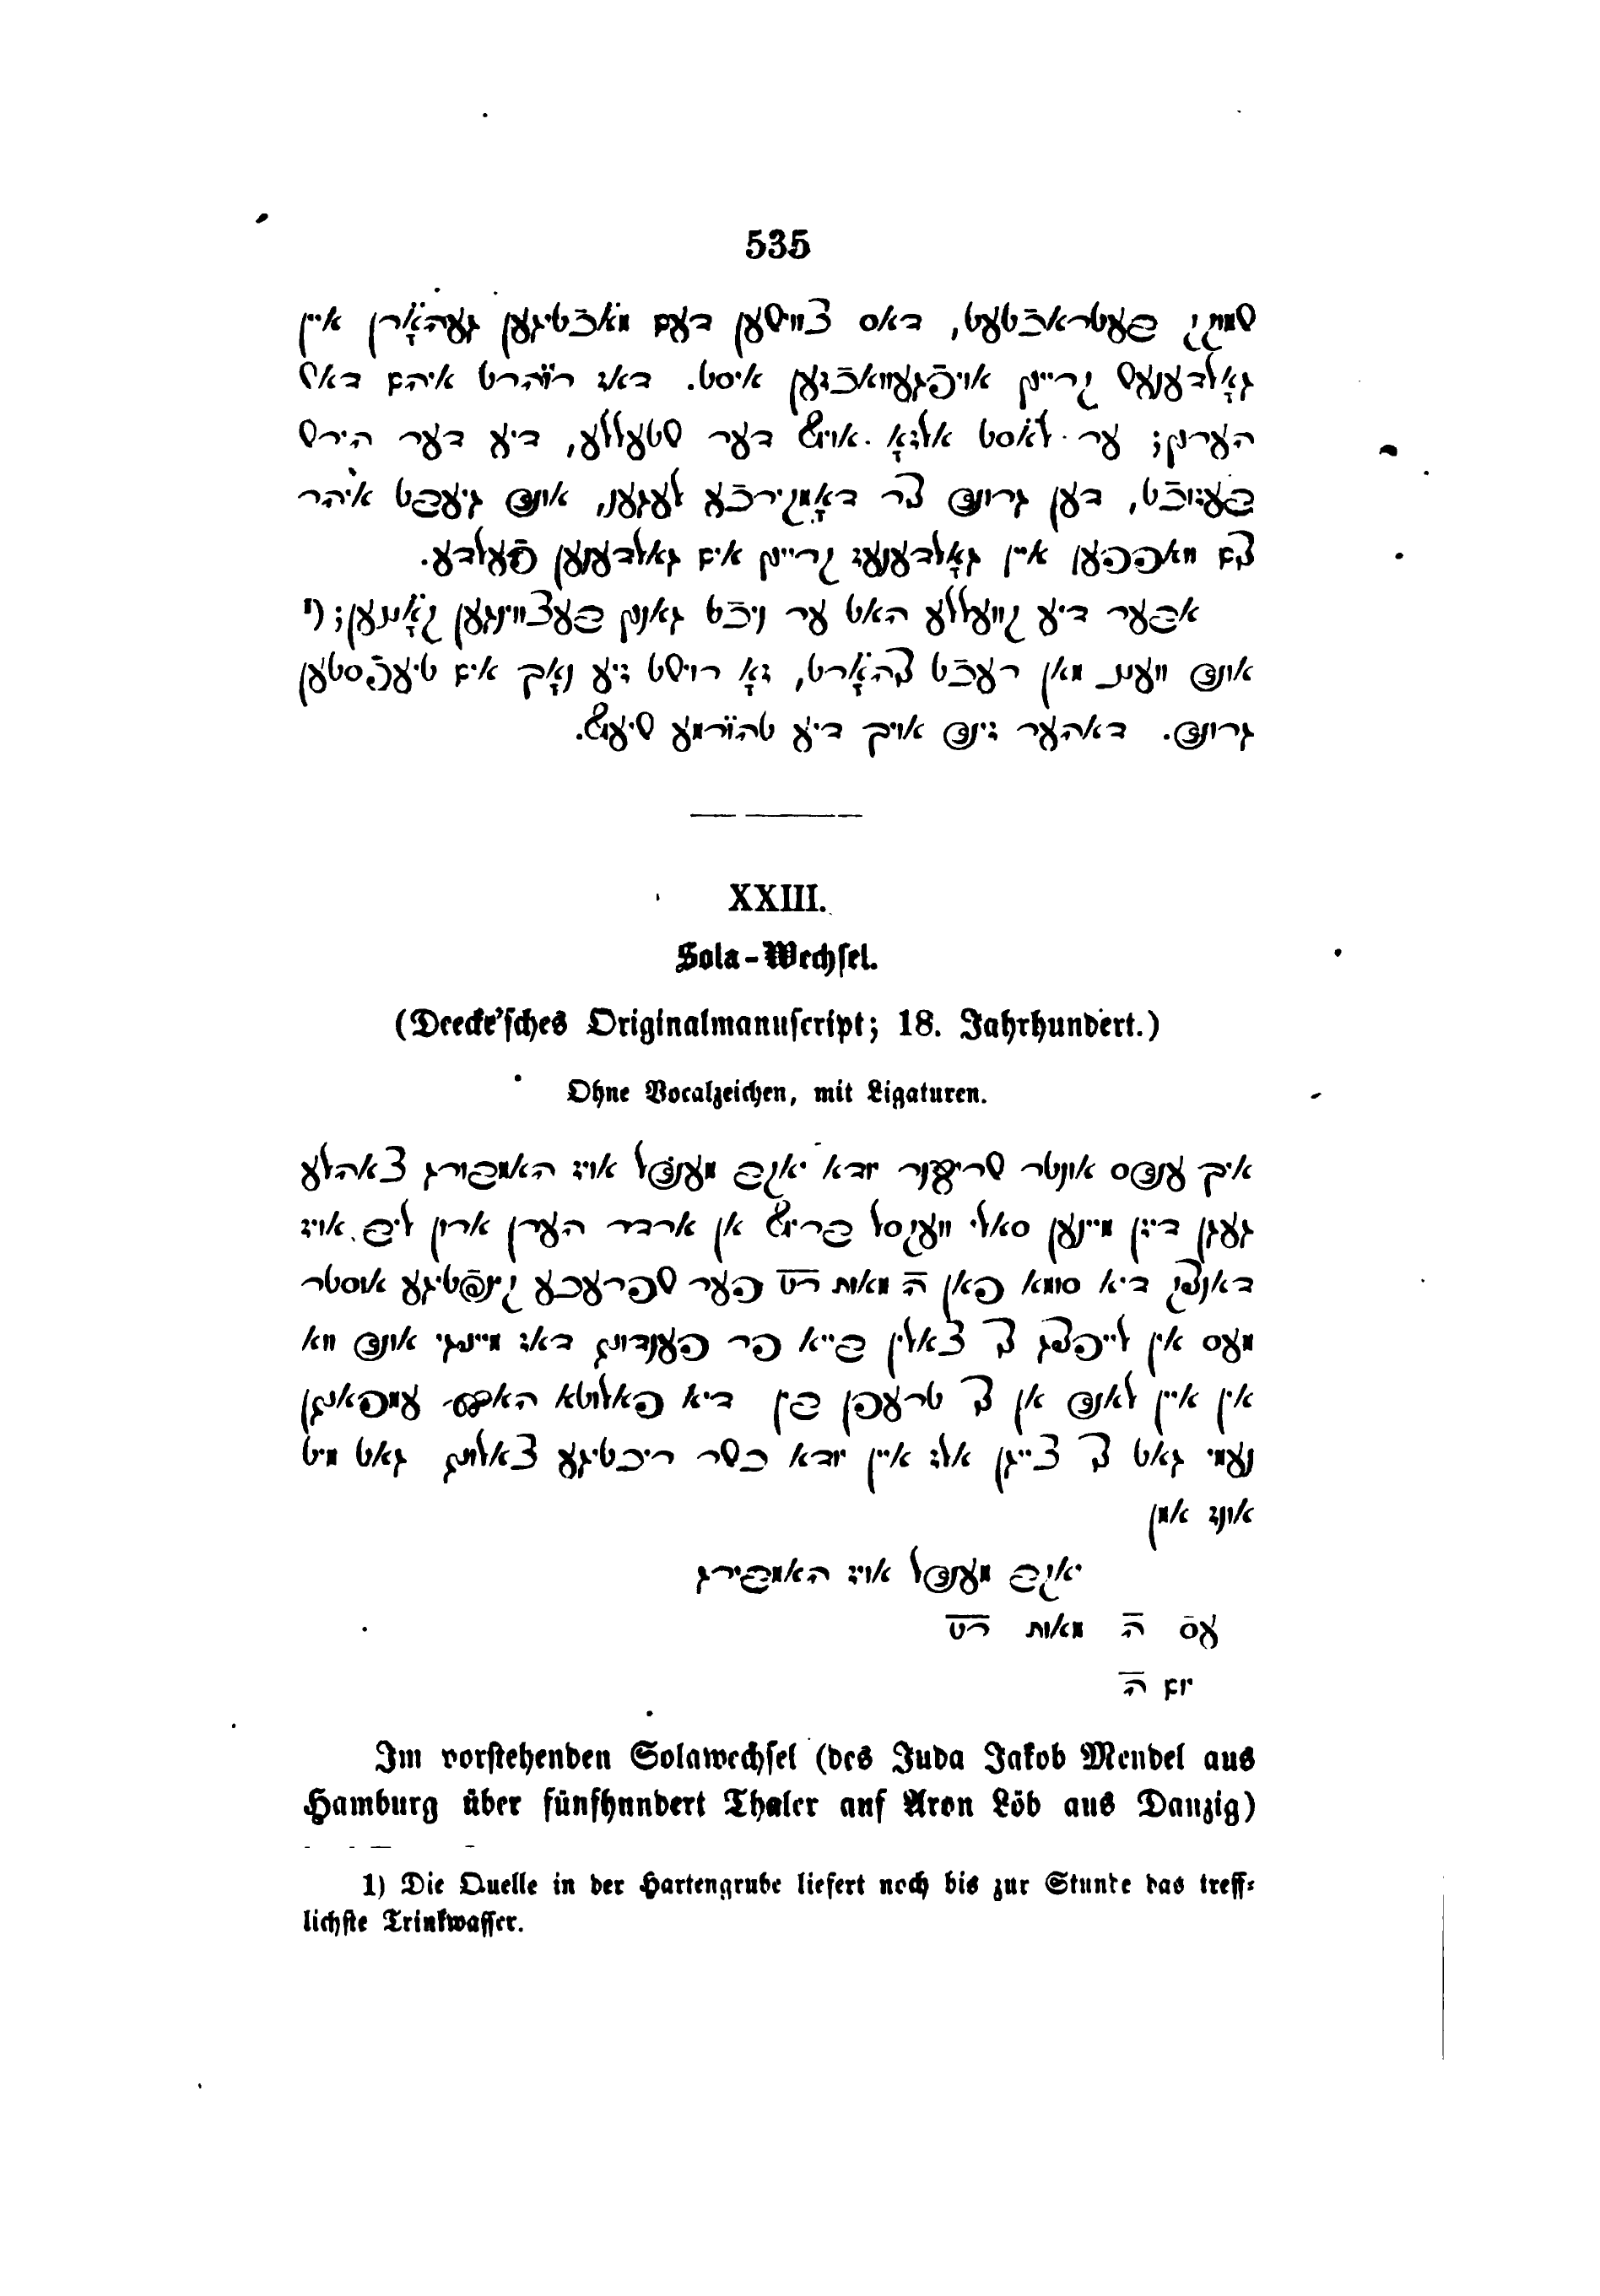 535
שמוק בעטראכטעט, דאס צווישען דעם מאָכטיגען געהאָרן איין
גאָלדענעס קרייץ אויפגעוואכזען איסט. דאז ריהרט איהם דאש
הערץ; ער לאסט אלזאָ אויף דער שטעללע, דיע דער הירש
בעזוכט, דען גרונד צר דאָמקירכע לעגען, אונד גיעבט איהר
צם וואפפען איין גאָלדענעז קרייץ אים גאלדענען פעלדע.
אבער דיע קוועללע האט ער ניכט גאנץ בעצווינגען קאָנען; (1
אונד ווענ מאן רעכט צהאָרט, זאָ רוישט זיע נאָך אים טיעפסטען
גרונד. דאהער זינד אויך דיע טהורמע שיעף.
XXIII.
Sola-Wechsel.
(Deecke'sches Originalmanuscript; 18. Jahrhundert.)
Ohne Vocalzeichen, mit Ligaturen.
איך ענדס אונטר יודא יאקב מענדל אויז האמבורג צאהלע
געגן דיזן מיינען סאלי וועקסל בריף אן ארדר הערן ארון ליב אויז
דאנציג דיא סומא פאן ה מאות רט פער שפרעכע קינפטיגע אוסטר
מעס אין לייפצג צ צאלין בייא פר פענדונג דאז מיינגי אונד ווא
אין איין לאנד אן צ טרעפן בין דיא פאלוטא עמפאנגן
נעמי גאט צ צייגן אלז איין יודא כשר ריכטיגע צאלונג גאט מיט
אונז אמן
יאקב מענדל אויז האמבירג
עס ה מאות רט
יום ה
Im vorstehenden Solawechsel (des Juda Jakob Mendel aus
Hamburg über fünfhundert Thaler auf Aron Löb aus Danzig)
1) Die Quelle in der Hartengrube liefert noch bis zur Stunde das treff-
lichste Trinkwasser.